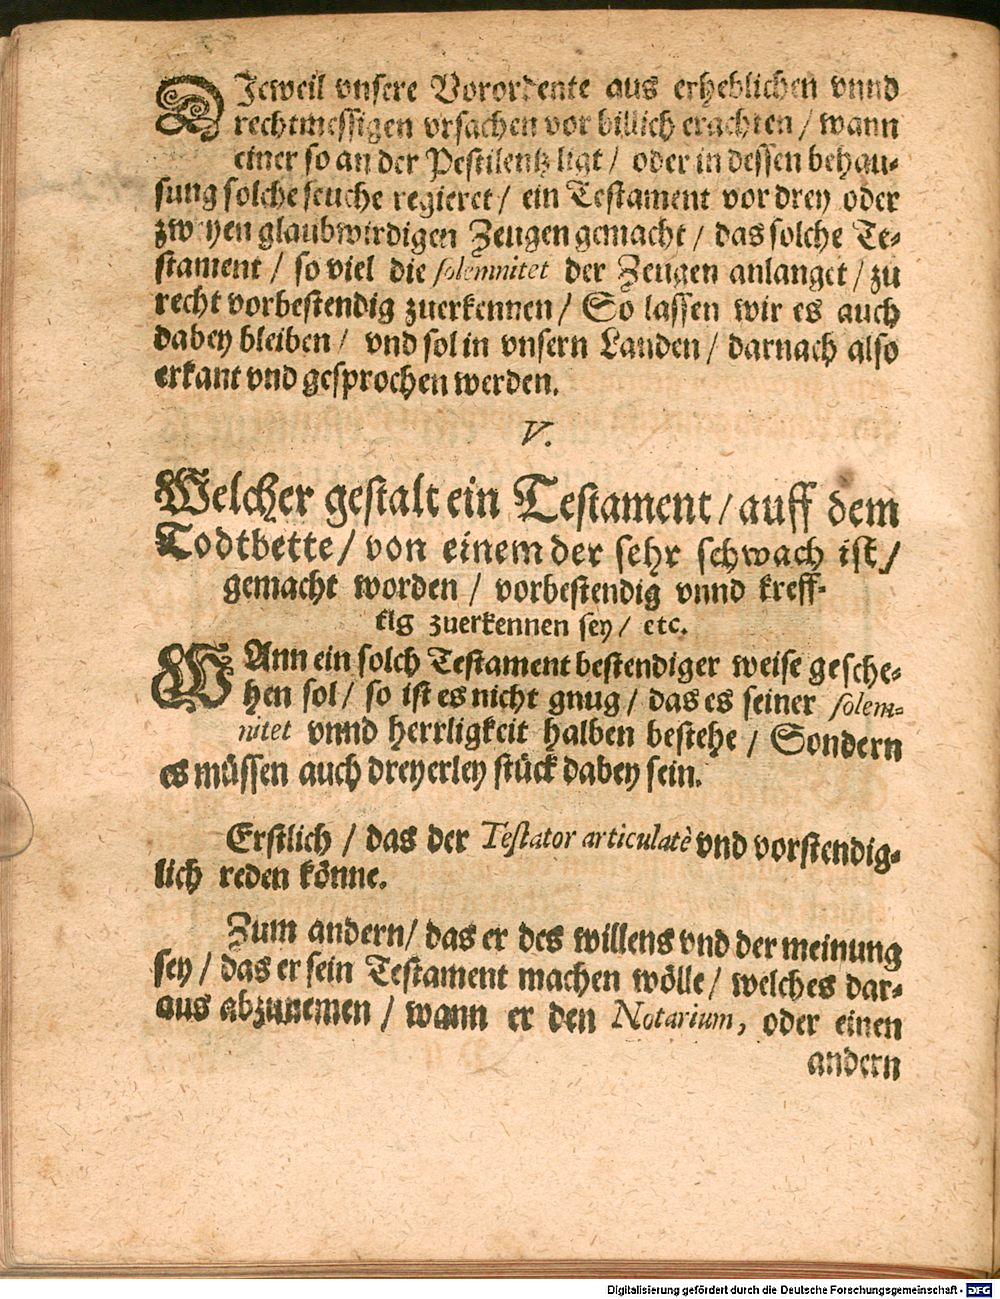 DJeweil vnsere Vorordente aus erheblichen vnnd
rechtmessigen vrsachen vor billich erachten / wann
einer so an der Pestilentz ligt / oder in dessen behau-
sung solche seuche regieret / ein Testament vor drey oder
zweyen glaubwirdigen Zeugen gemacht / das solche Te-
stament / so viel die solemnitet der Zeugen anlanget / zu
recht vorbestendig zuerkennen / So lassen wir es auch
dabey bleiben / vnd sol in vnsern Landen / darnach also
erkant vnd gesprochen werden.
V.
Welcher gestalt ein Testament / auff dem
Todtbette / von einem der sehr schwach ist /
gemacht worden / vorbestendig vnnd kreff-
tig zuerkennen sey / etc.
WAnn ein solch Testament bestendiger weise gesche-
hen sol / so ist es nicht gnug / das es seiner solem-
nitet vnnd herrligkeit halben bestehe / Sondern
es müssen auch dreyerley stück dabey sein.
Erstlich / das der Testator articulatè vnd vorstendig-
lich reden könne.
Zum andern / das er des willens vnd der meinung
sey / das er sein Testament machen wölle / welches dar-
aus abzunemen / wann er den Notarium, oder einen
andern
Digitalisierung gefördert durch die Deutsche Forschungsgemeinschaft - DFG